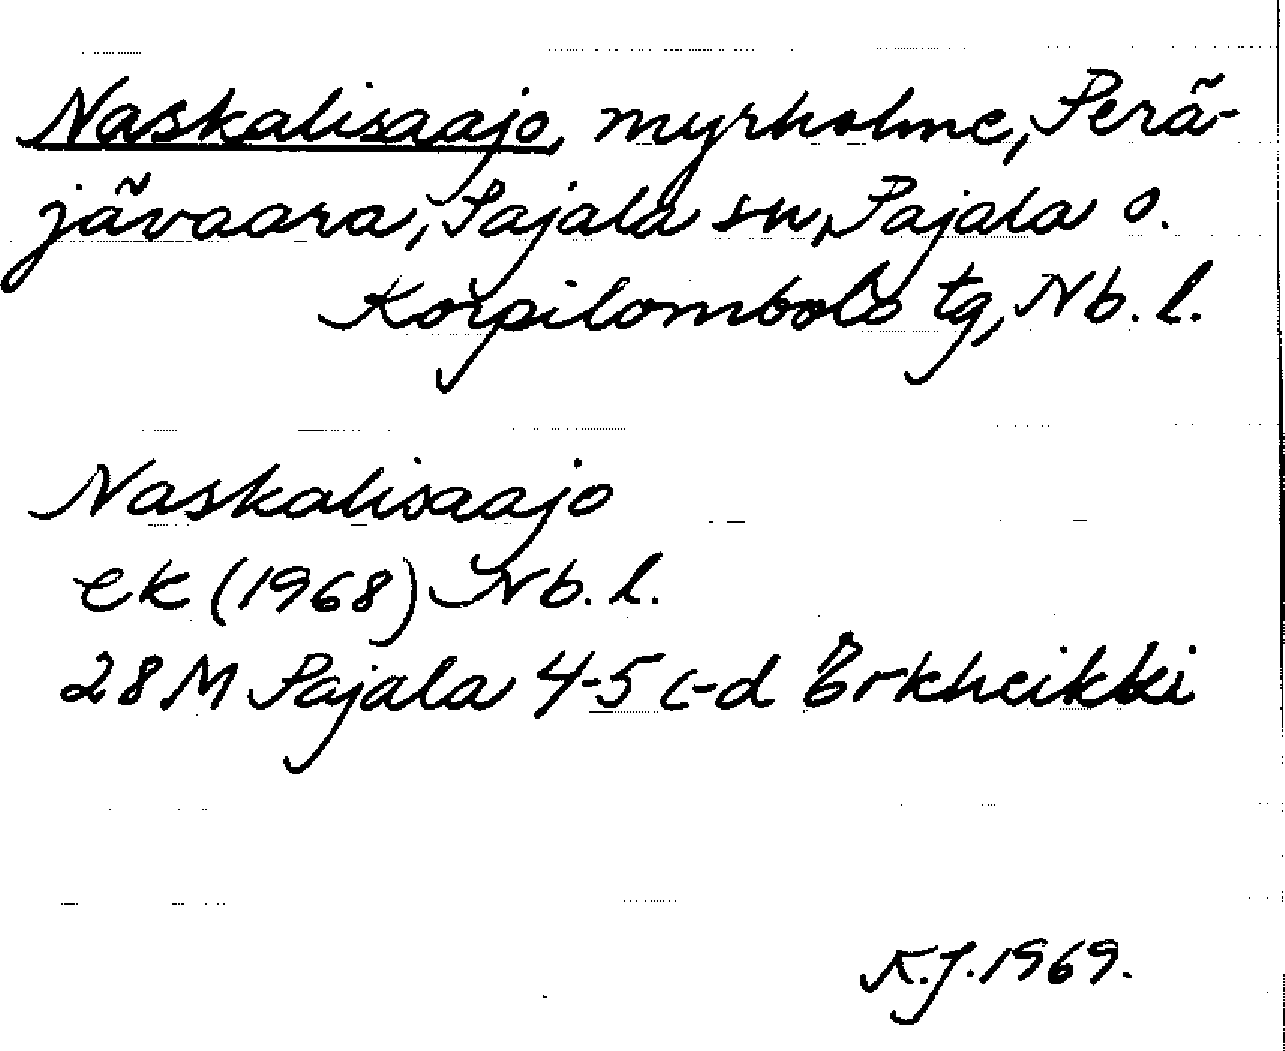 Naskalisaajo, myrholme, Perä-
jävaara, Pajala sn, Pajala o.
Korpilombolo tg, Nb. l.
Naskalisaajo
ek (1968) Nb. l.
28 M Pajala 4-5 c-d Erkheikki
K.J. 1969.